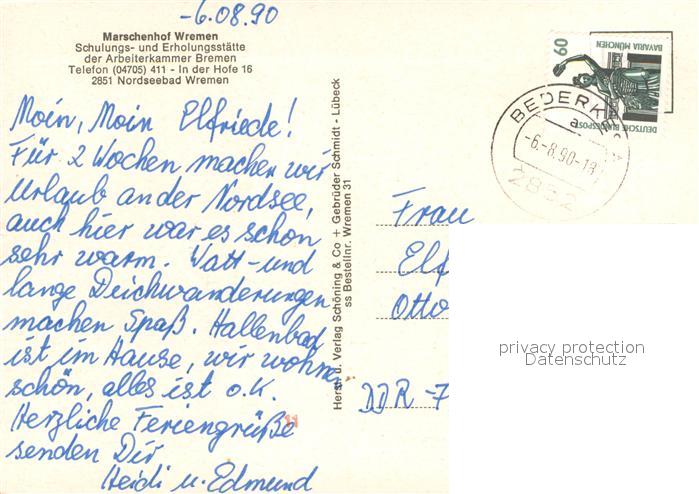 -6.08.90
Marschenhof Wremen
Schulungs- und Erholungsstätte
der Arbeiterkammer Bremen
Telefon (04705) 411 - In der Hofe 16
2851 Nordseebad Wremen
Moin, Moin Elfriede!
Für 2 Wochen machen wir
Urlaub an der Nordsee,
auch hier war es schon
sehr warm. Watt- und
lange Deichwanderungen
machen Spaß. Hallenbad
ist im Hause, wir wohnen
schön, alles ist o.K.
Herzliche Feriengrüße
senden Dir
Heidi u. Edmund
Herst. u. Verlag Schöning & Co + Gebrüder Schmidt - Lübeck
ss Bestellnr. Wremen 31
60
BAVARIA MÜNCHEN
DEUTSCHE BUNDESPOST
BEDERKE
a
-6.-8.90-18
2852
Frau
Elf
Otto
DDR - 7
privacy protection
Datenschutz